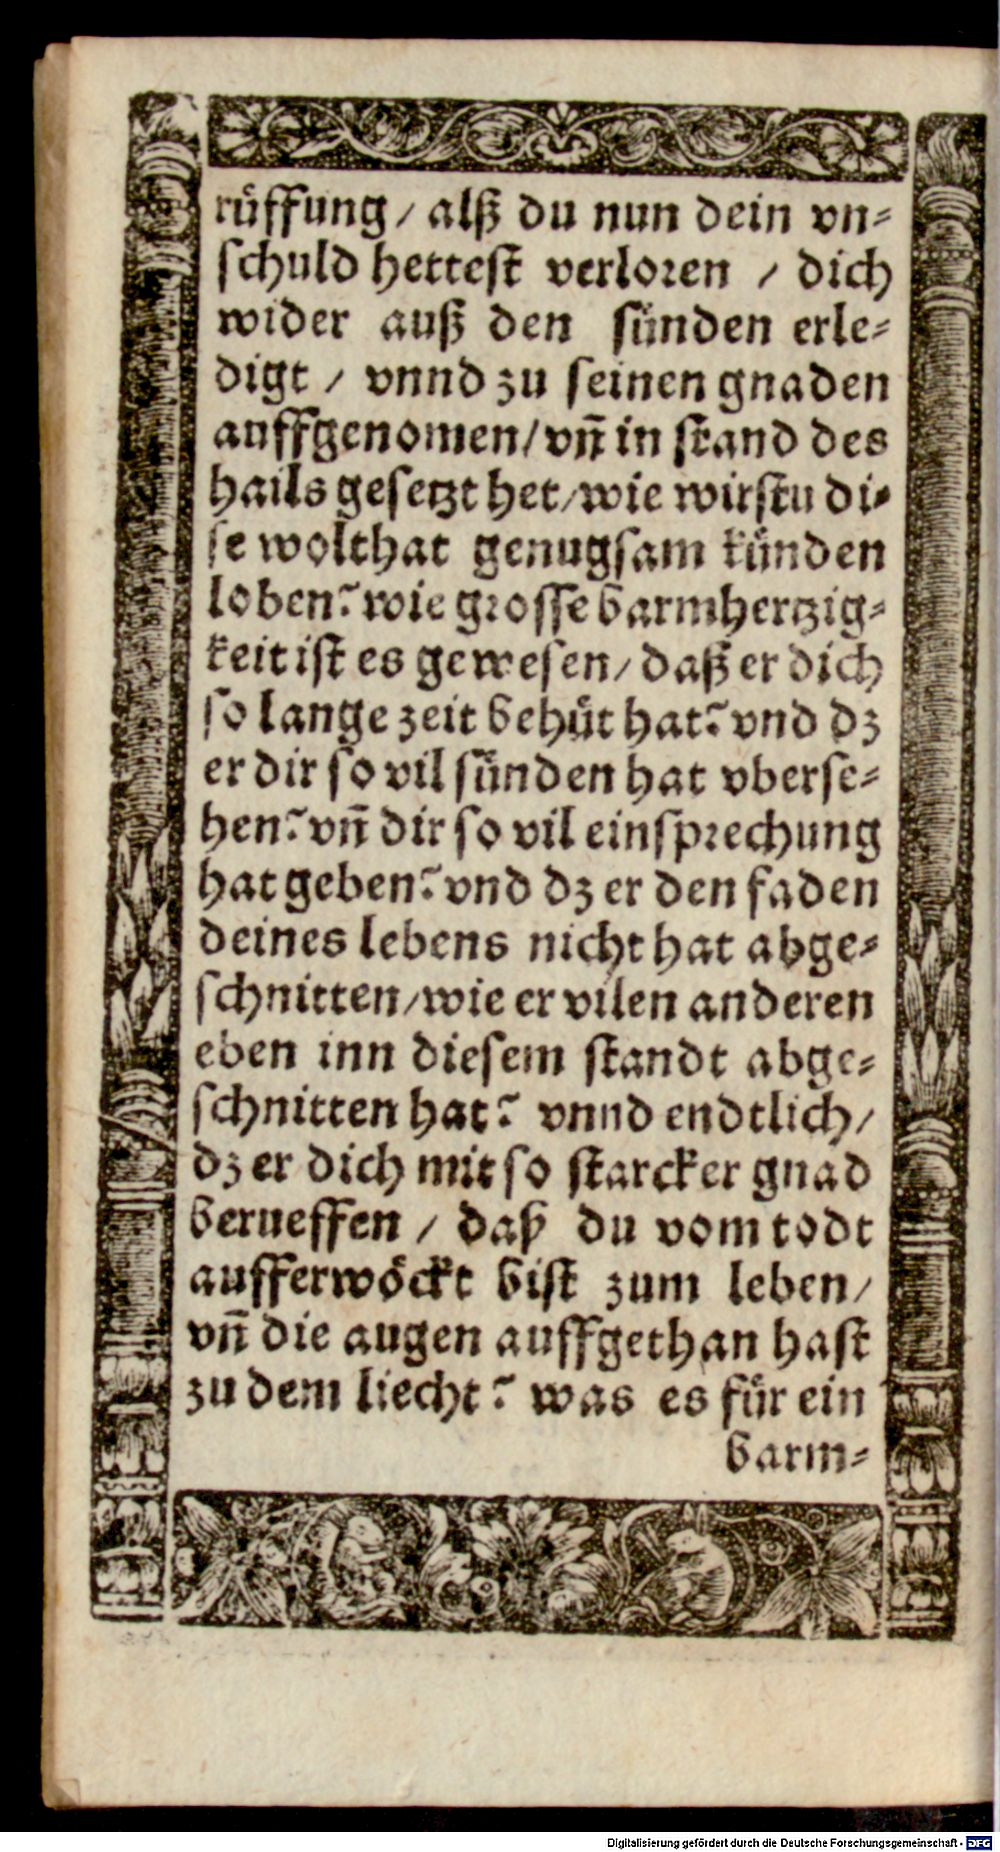 rüffung / alß du nun dein vn=
schuld hettest verloren / dich
wider auß den sünden erle=
digt / vnnd zu seinen gnaden
auffgenomen / vn̄ in stand des
hails gesetzt het / wie wirstu di=
se wolthat genugsam künden
loben? wie grosse barmhertzig=
keit ist es gewesen / daß er dich
so lange zeit behüt hat? vnd dz
er dir so vil sünden hat vberse=
hen? vn̄ dir so vil einsprechung
hat geben? vnd dz er den faden
deines lebens nicht hat abge=
schnitten / wie er vilen anderen
eben inn diesem standt abge=
schnitten hat? vnnd endtlich /
dz er dich mit so starcker gnad
berueffen / daß du vom todt
aufferwöckt bist zum leben /
vn̄ die augen auffgethan hast
zu dem liecht? was es für ein
barm=
Digitalisierung gefördert durch die Deutsche Forschungsgemeinschaft - DFG